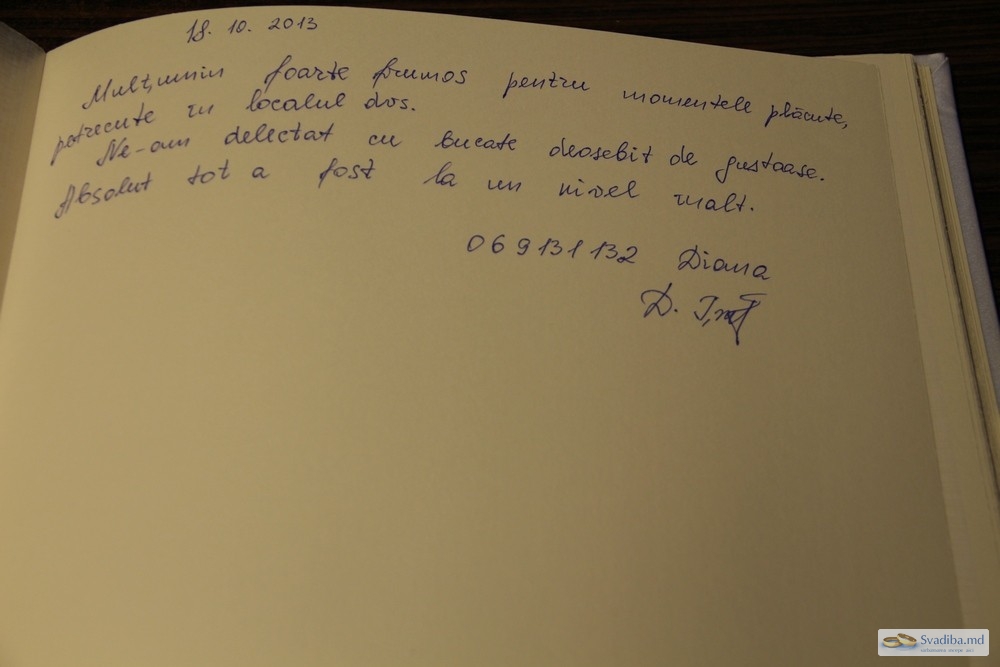 18. 10. 2013
Mulțumim foarte frumos pentru momentele plăcute,
petrecute în localul dvs.
Ne-am delectat cu bucate deosebit de gustoase.
Absolut tot a fost la un nivel înalt.
069131132 Diana
D.
Svadiba.md